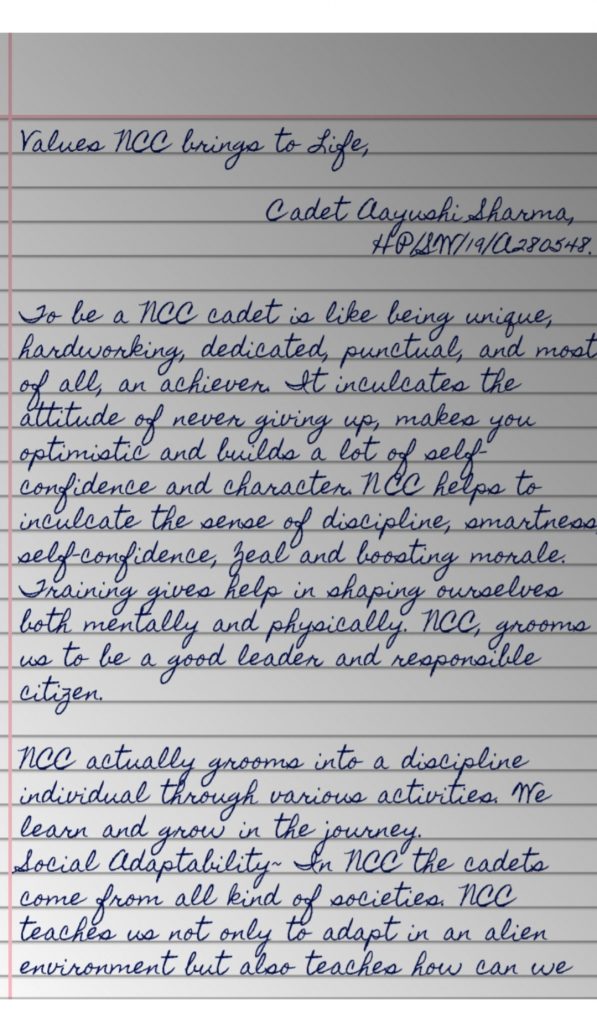 Values NCC brings to Life,
Cadet Aayushi Sharma,
HP/SW/19/A280548.
To be a NCC cadet is like being unique,
hardworking, dedicated, punctual, and most
of all, an achiever. It inculcates the
attitude of never giving up, makes you
optimistic and builds a lot of self-
confidence and character. NCC helps to
inculcate the sense of discipline, smartness,
self-confidence, zeal and boosting morale.
Training gives help in shaping ourselves
both mentally and physically. NCC, grooms
us to be a good leader and responsible
citizen.
NCC actually grooms into a discipline
individual through various activities. We
learn and grow in the journey.
Social Adaptability~ In NCC the cadets
come from all kind of societies. NCC
teaches us not only to adapt in an alien
environment but also teaches how can we